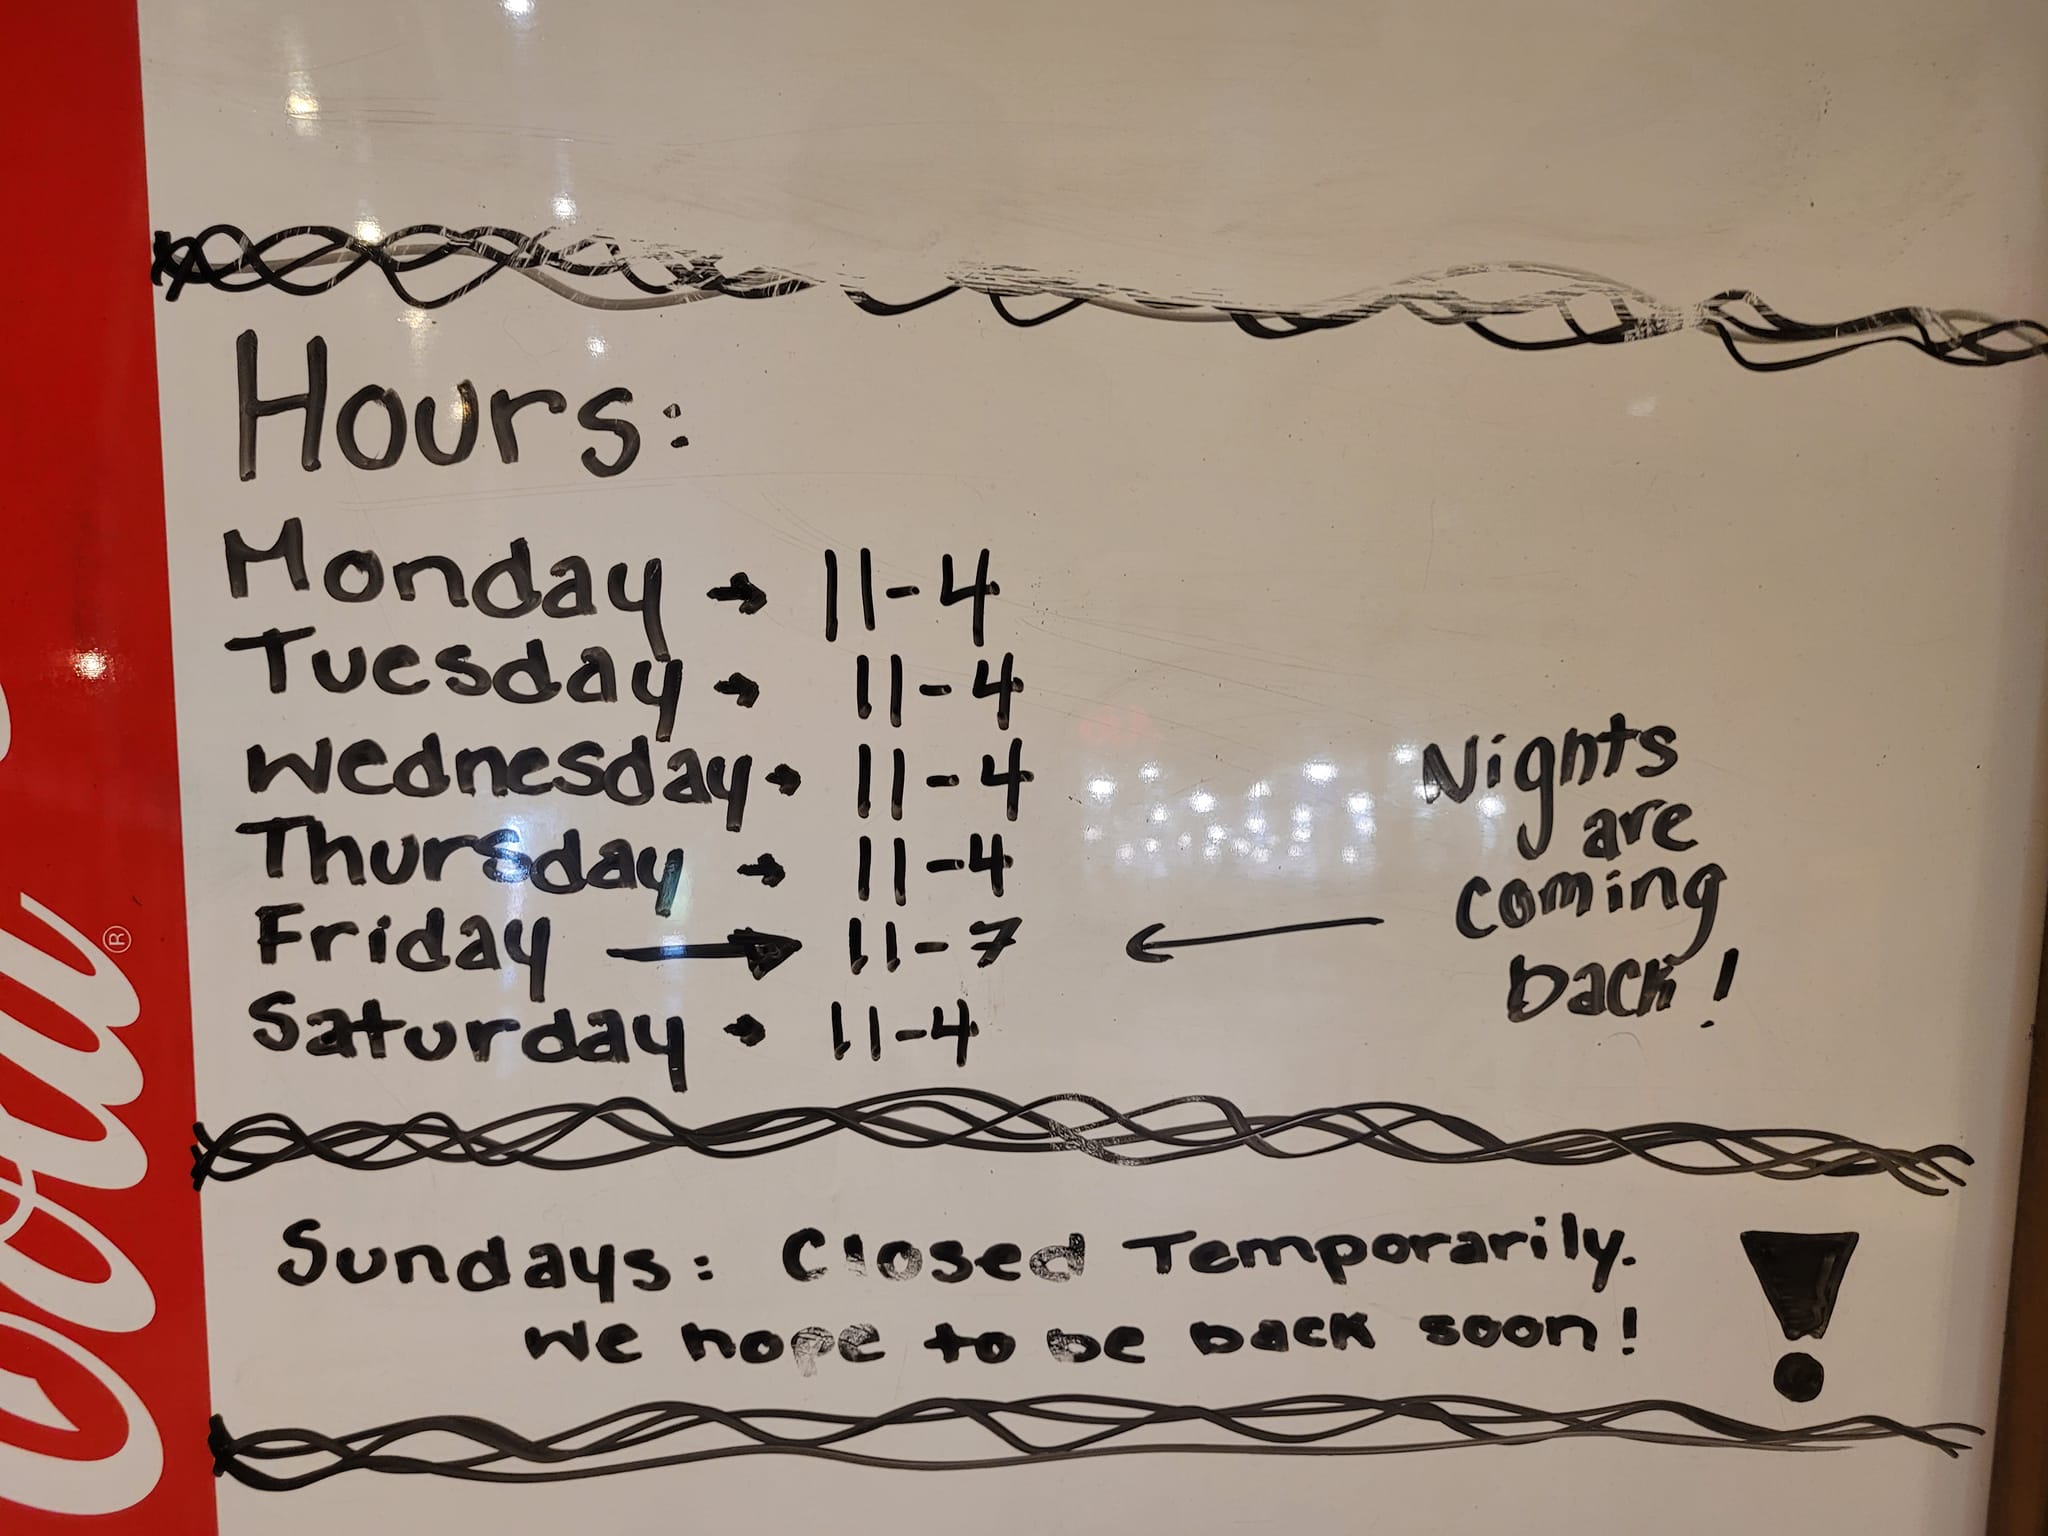 Hours:
Monday → 11-4
Tuesday → 11-4
Wednesday → 11-4
Thursday → 11-4
Friday → 11-7
Saturday → 11-4
← Nights
are
coming
back!
Sundays: Closed Temporarily.
We hope to be back soon!
!
Coca-Cola®